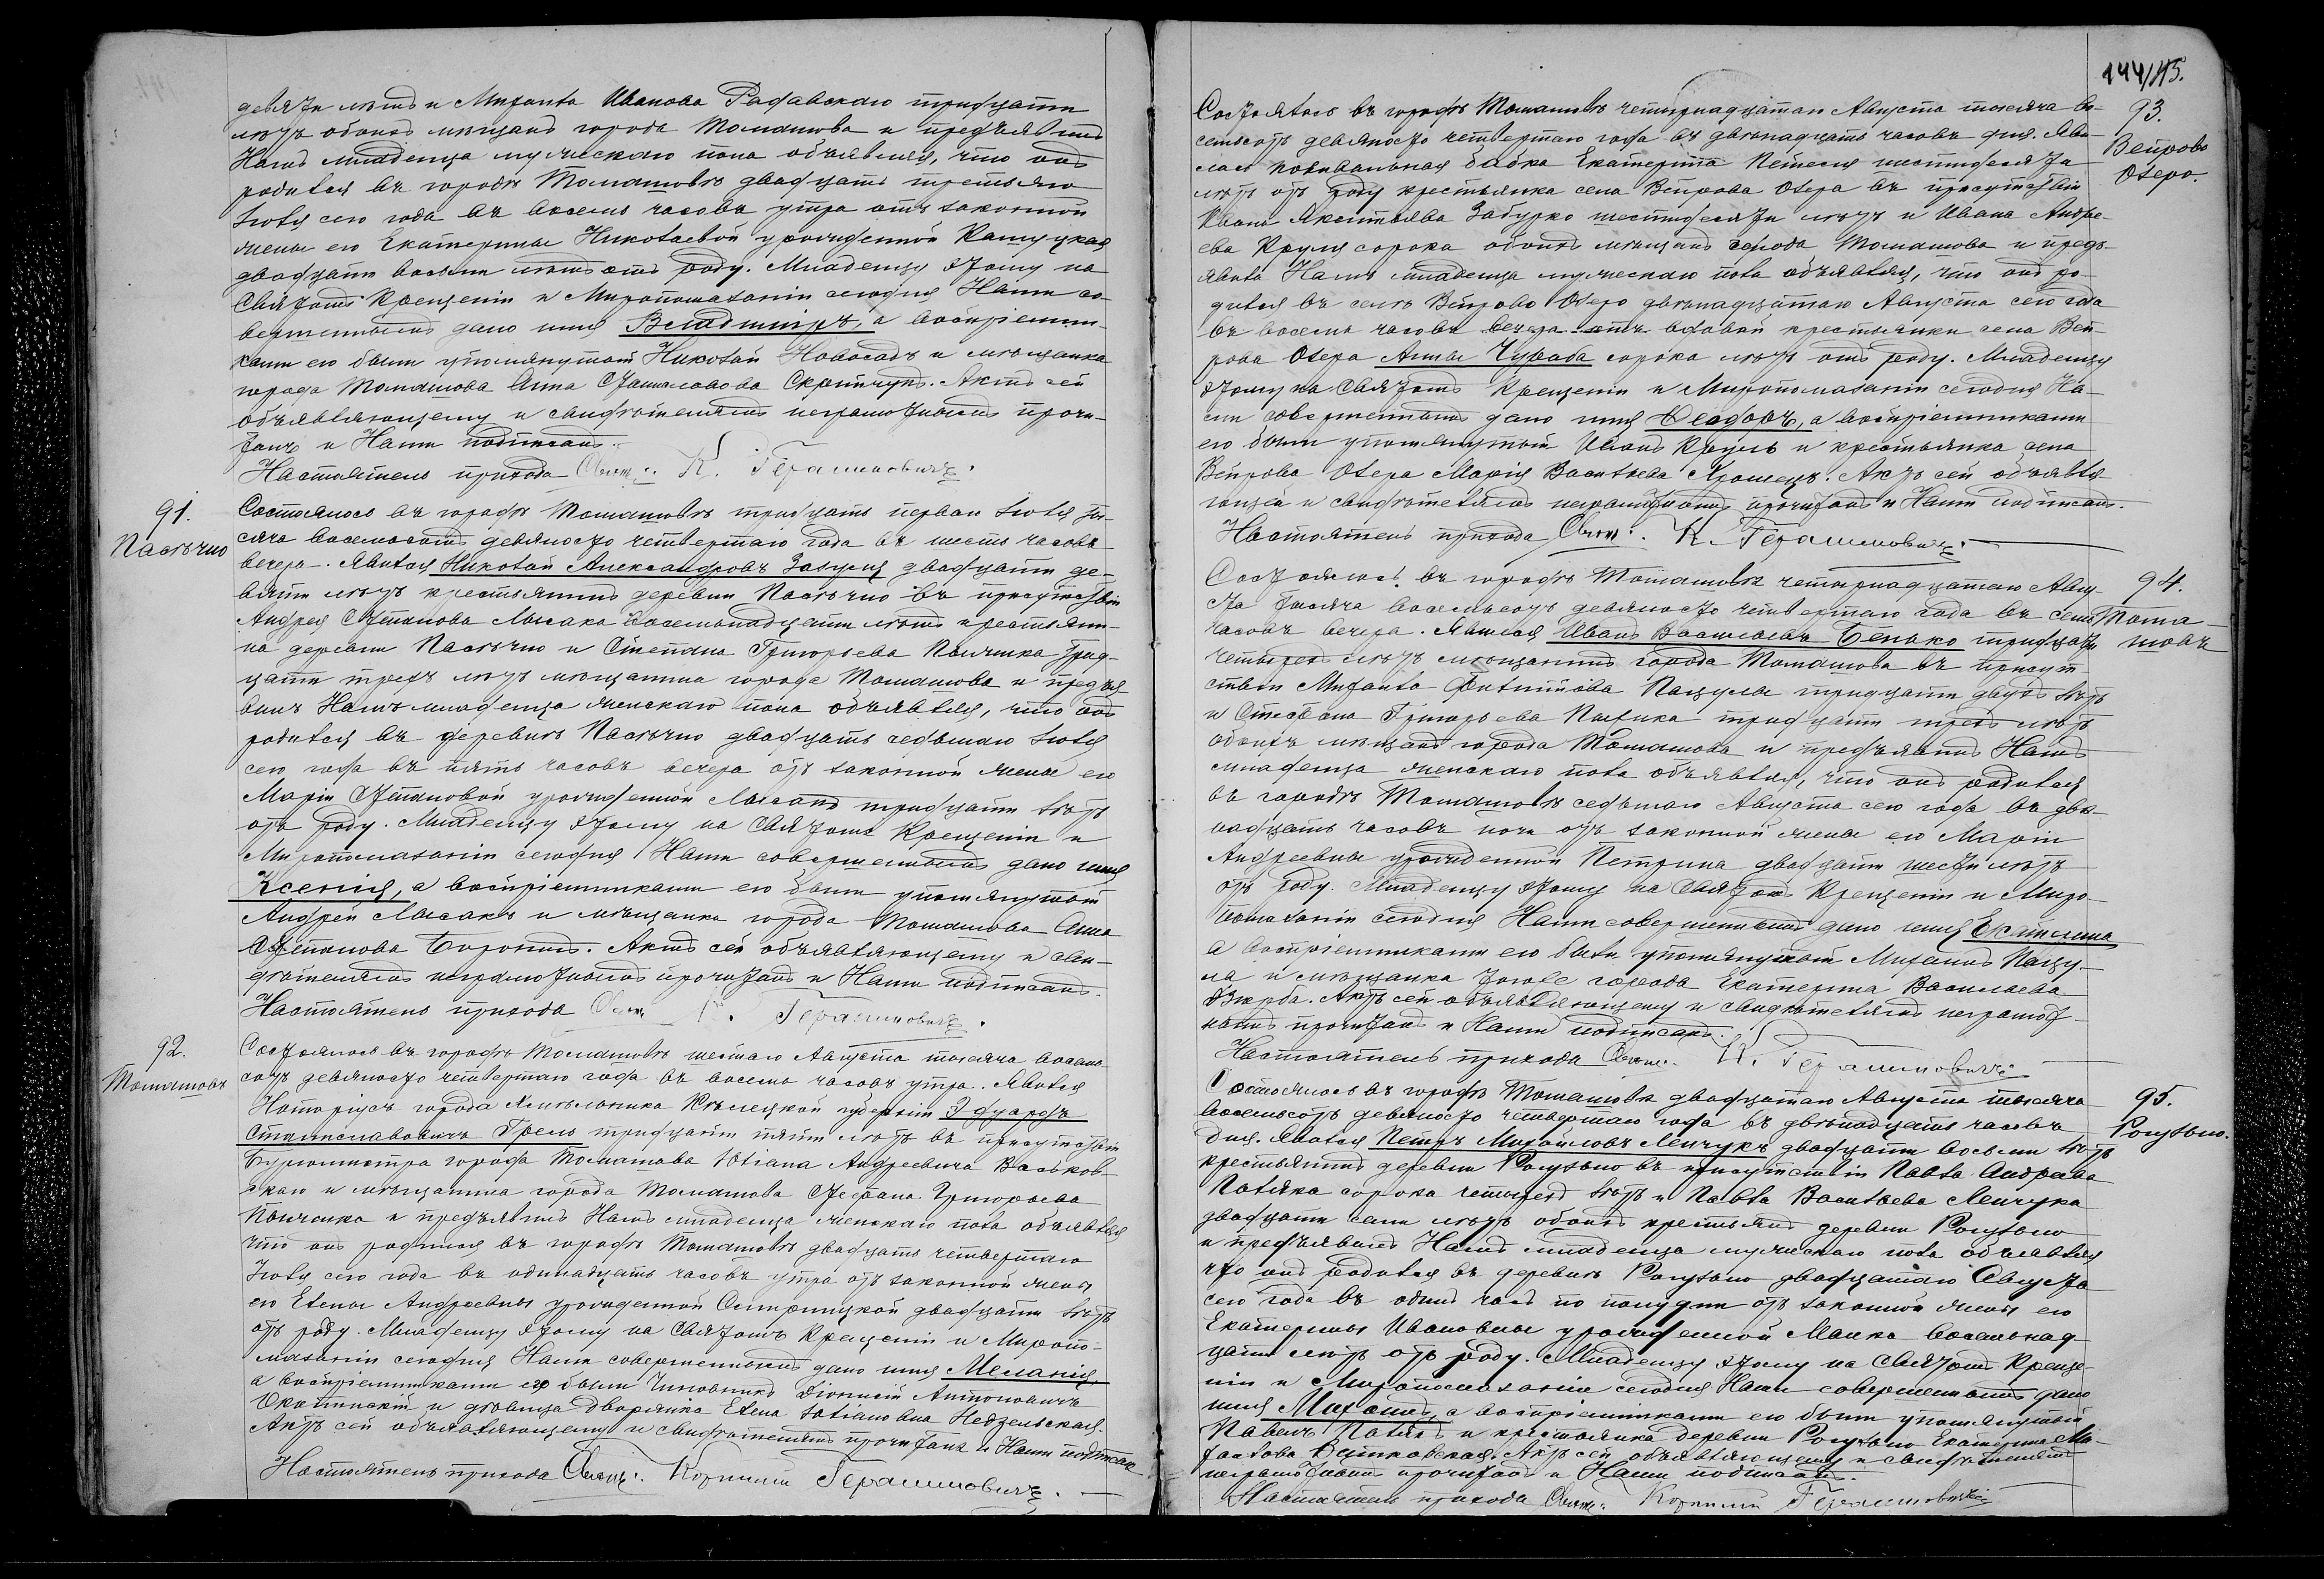 девяти лѣтъ и Михаила Иванова Рафавскаго тридцати
лѣтъ обоихъ мѣщанъ города Томашова и предъявилъ
Намъ младенца мужескаго пола объявляя, что онъ
родился въ городѣ Томашовѣ двадцать третьяго
Іюля сего года въ восемь часовъ утра отъ законной
жены его Екатерины Николаевой урожденной
двадцати восьми лѣтъ отъ роду. Младенцу этому на
Святомъ Крещеніи и Миропомазаніи сегодня Нами со-
вершенномъ дано имя Владиміръ, а воспріемни-
ками его были упомянутый Николай Новосадъ и мѣщанка
города Томашова Анна Скрипчукъ. Актъ сей
объявляющему и свидѣтелямъ неграмотнымъ прочи-
танъ и Нами подписанъ.
Настоятель прихода Свящ: К. Герасимовичъ.
91.
Пасѣчно
Состоялось въ городѣ Томашовѣ тридцать перваго Іюля ты-
сяча восемьсотъ девяносто четвертаго года въ шесть часовъ
вечера. Явился Николай Александровъ Зозуля двадцати де-
вяти лѣтъ крестьянинъ деревни Пасѣчно въ присутствіи
Андрея Степанова Лысака восемьнадцати лѣтъ крестьяни-
на деревни Пасѣчно и Стефана Григорьева Пылипка трид-
цати трехъ лѣтъ мѣщанина города Томашова и предъя-
вилъ Намъ младенца женскаго пола объявляя, что онъ
родился въ деревнѣ Пасѣчно двадцать седьмаго Іюля
сего года въ пять часовъ вечера отъ законной жены его
Маріи Степановой урожденной Лысакъ тридцати лѣтъ
отъ роду. Младенцу этому на Святомъ Крещеніи и
Миропомазаніи сегодня Нами совершенномъ дано имя
Ксенія, а воспріемниками его были упомянутый
Андрей Лысакъ и мѣщанка города Томашова Анна
Степанова. Актъ сей объявляющему и сви-
дѣтелямъ неграмотнымъ прочитанъ и Нами подписанъ.
Настоятель прихода Свящ К. Герасимовичъ.
92.
Томашовъ
Состоялось въ городѣ Томашовѣ шестаго Августа тысяча восемь-
сотъ девяносто четвертаго года въ восемь часовъ утра. Явился
Нотаріусъ города Хмѣльника Кѣлецкой губерніи Эдуардъ
Станиславовичъ Грель тридцати пяти лѣтъ въ присутствіи
Бургомистра города Томашова Юліана Андреевича Васьков-
скаго и мѣщанина города Томашова Стефана Григорьева
Пылипка и предъявилъ Намъ младенца женскаго пола объявляя
что онъ родился въ городѣ Томашовѣ двадцать четвертаго
Іюля сего года въ одинадцать часовъ утра отъ законной жены
его Елены Андреевны урожденной двадцати лѣтъ
отъ роду. Младенцу этому на Святомъ Крещеніи и Миропо-
мазаніи сегодня Нами совершенномъ дано имя Меланія,
а воспріемниками его были Чиновникъ Діонисій Антоновичъ
и дѣвица дворянка Елена Юліановна Недзельская.
Актъ сей объявляющему и свидѣтелямъ прочитанъ и Нами подписанъ
Настоятель прихода Свящ: Корнилій Герасимовичъ.
144/145.
93.
Вепрово
Озеро.
Состоялось въ городѣ Томашовѣ четырнадцатаго Августа тысяча во-
семьсотъ девяносто четвертаго года въ двѣнадцать часовъ дня. Яви-
лась повивальная бабка Екатерина шестидесяти
лѣтъ отъ роду крестьянка села Вепрова Озера въ присутствіи
Ивана Забурко шестидесяти лѣтъ и Ивана Андре-
ева Круля сорока обоихъ мѣщанъ города Томашова и предъ-
явила Намъ младенца мужескаго пола объявляя, что онъ ро-
дился въ селѣ Вепрово Озеро двѣнадцатаго Августа сего года
въ восемь часовъ вечера отъ вдовой крестьянки села Веп-
рова Озера Анны Чураба сорока лѣтъ отъ роду. Младенцу
этому на Святомъ Крещеніи и Миропомазаніи сегодня На-
ми совершенномъ дано имя Ѳеодоръ, а воспріемниками
его были упомянутый Иванъ Круль и крестьянка села
Вепрова Озера Марія Васильева. Актъ сей объявля-
ющей и свидѣтелямъ неграмотнымъ прочитанъ и Нами подписанъ.
Настоятель прихода Свящ: К. Герасимовичъ.
94.
Тома-
шовъ
Состоялось въ городѣ Томашовѣ четырнадцатаго Авгу-
ста тысяча восемьсотъ девяносто четвертаго года въ семь
часовъ вечера. Явился Иванъ Васильевъ Бенько тридцати
четырехъ лѣтъ мѣщанинъ города Томашова въ присут-
ствіи Михаила Филипова Пацулы тридцати двухъ лѣтъ
и Стефана Григорьева Пылипка тридцати трехъ лѣтъ
обоихъ мѣщанъ города Томашова и предъявилъ Намъ
младенца женскаго пола объявляя, что онъ родился
въ городѣ Томашовѣ седьмаго Августа сего года въ двѣ-
надцать часовъ ночи отъ законной жены его Маріи
Андреевны урожденной Петрина двадцати шести лѣтъ
отъ роду. Младенцу этому на Святомъ Крещеніи и Миро-
помазаніи сегодня Нами совершенномъ дано имя Екатерина
а воспріемниками его были упомянутый Михаилъ Пацу-
ла и мѣщанка того города Екатерина Васильева
Актъ сей объявляющему и свидѣтелямъ неграмот-
нымъ прочитанъ и Нами подписанъ.
Настоятель прихода Свящ. К. Герасимовичъ
95.
Рогузьно.
Состоялось въ городѣ Томашовѣ двадцатаго Августа тысяча
восемьсотъ девяносто четвертаго года въ двѣнадцать часовъ
дня. Явился Петръ Михайловъ Ленчукъ двадцати восьми лѣтъ
крестьянинъ деревни Рогузьно въ присутствіи Павла Андреева
Патяка сорока четырехъ лѣтъ и Павла Васильева Ленчука
двадцати семи лѣтъ обоихъ крестьянъ деревни Рогузьно
и предъявилъ Намъ младенца мужескаго пола объявляя
что онъ родился въ деревнѣ Рогузьно двадцатаго Августа
сего года въ одинъ часъ по полудни отъ законной жены его
Екатерины Ивановны урожденной Манко восемьнад-
цати лѣтъ отъ роду. Младенцу этому на Святомъ Креще-
ніи и Миропомазаніи сегодня Нами совершенномъ дано
имя Михаилъ, а воспріемниками его были упомянутый
Павелъ Патякъ и крестьянка деревни Рогузьно Екатерина
Актъ сей объявляющему и свидѣтелямъ
неграмотнымъ прочитанъ и Нами подписанъ.
Настоятель прихода Свящ: Корнилій Герасимовичъ